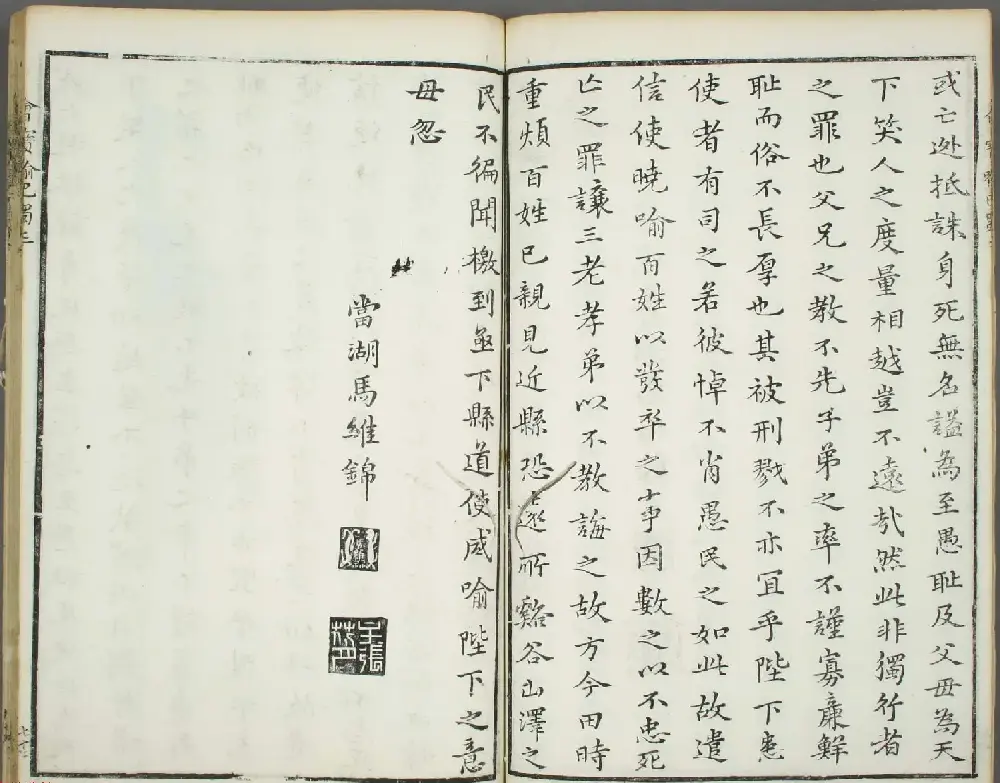 或亡逃抵誅身死無名謚為至愚恥及父母為天
下笑人之度量相越豈不遠㢤然此非獨行者
之罪也父兄之教不先子弟之率不謹寡廉鮮
恥而俗不長厚也其被刑戮不亦冝乎陛下患
使者有司之若彼悼不肖愚民之如此故遣
信使曉喻百姓以發卒之事因數之以不忠死
亡之罪讓三老孝弟以不教誨之故方今田時
重煩百姓已親見近縣恐遠所谿谷山澤之
民不徧聞檄到亟下縣道使咸喻陛下之意
毋忽
當湖馬維錦